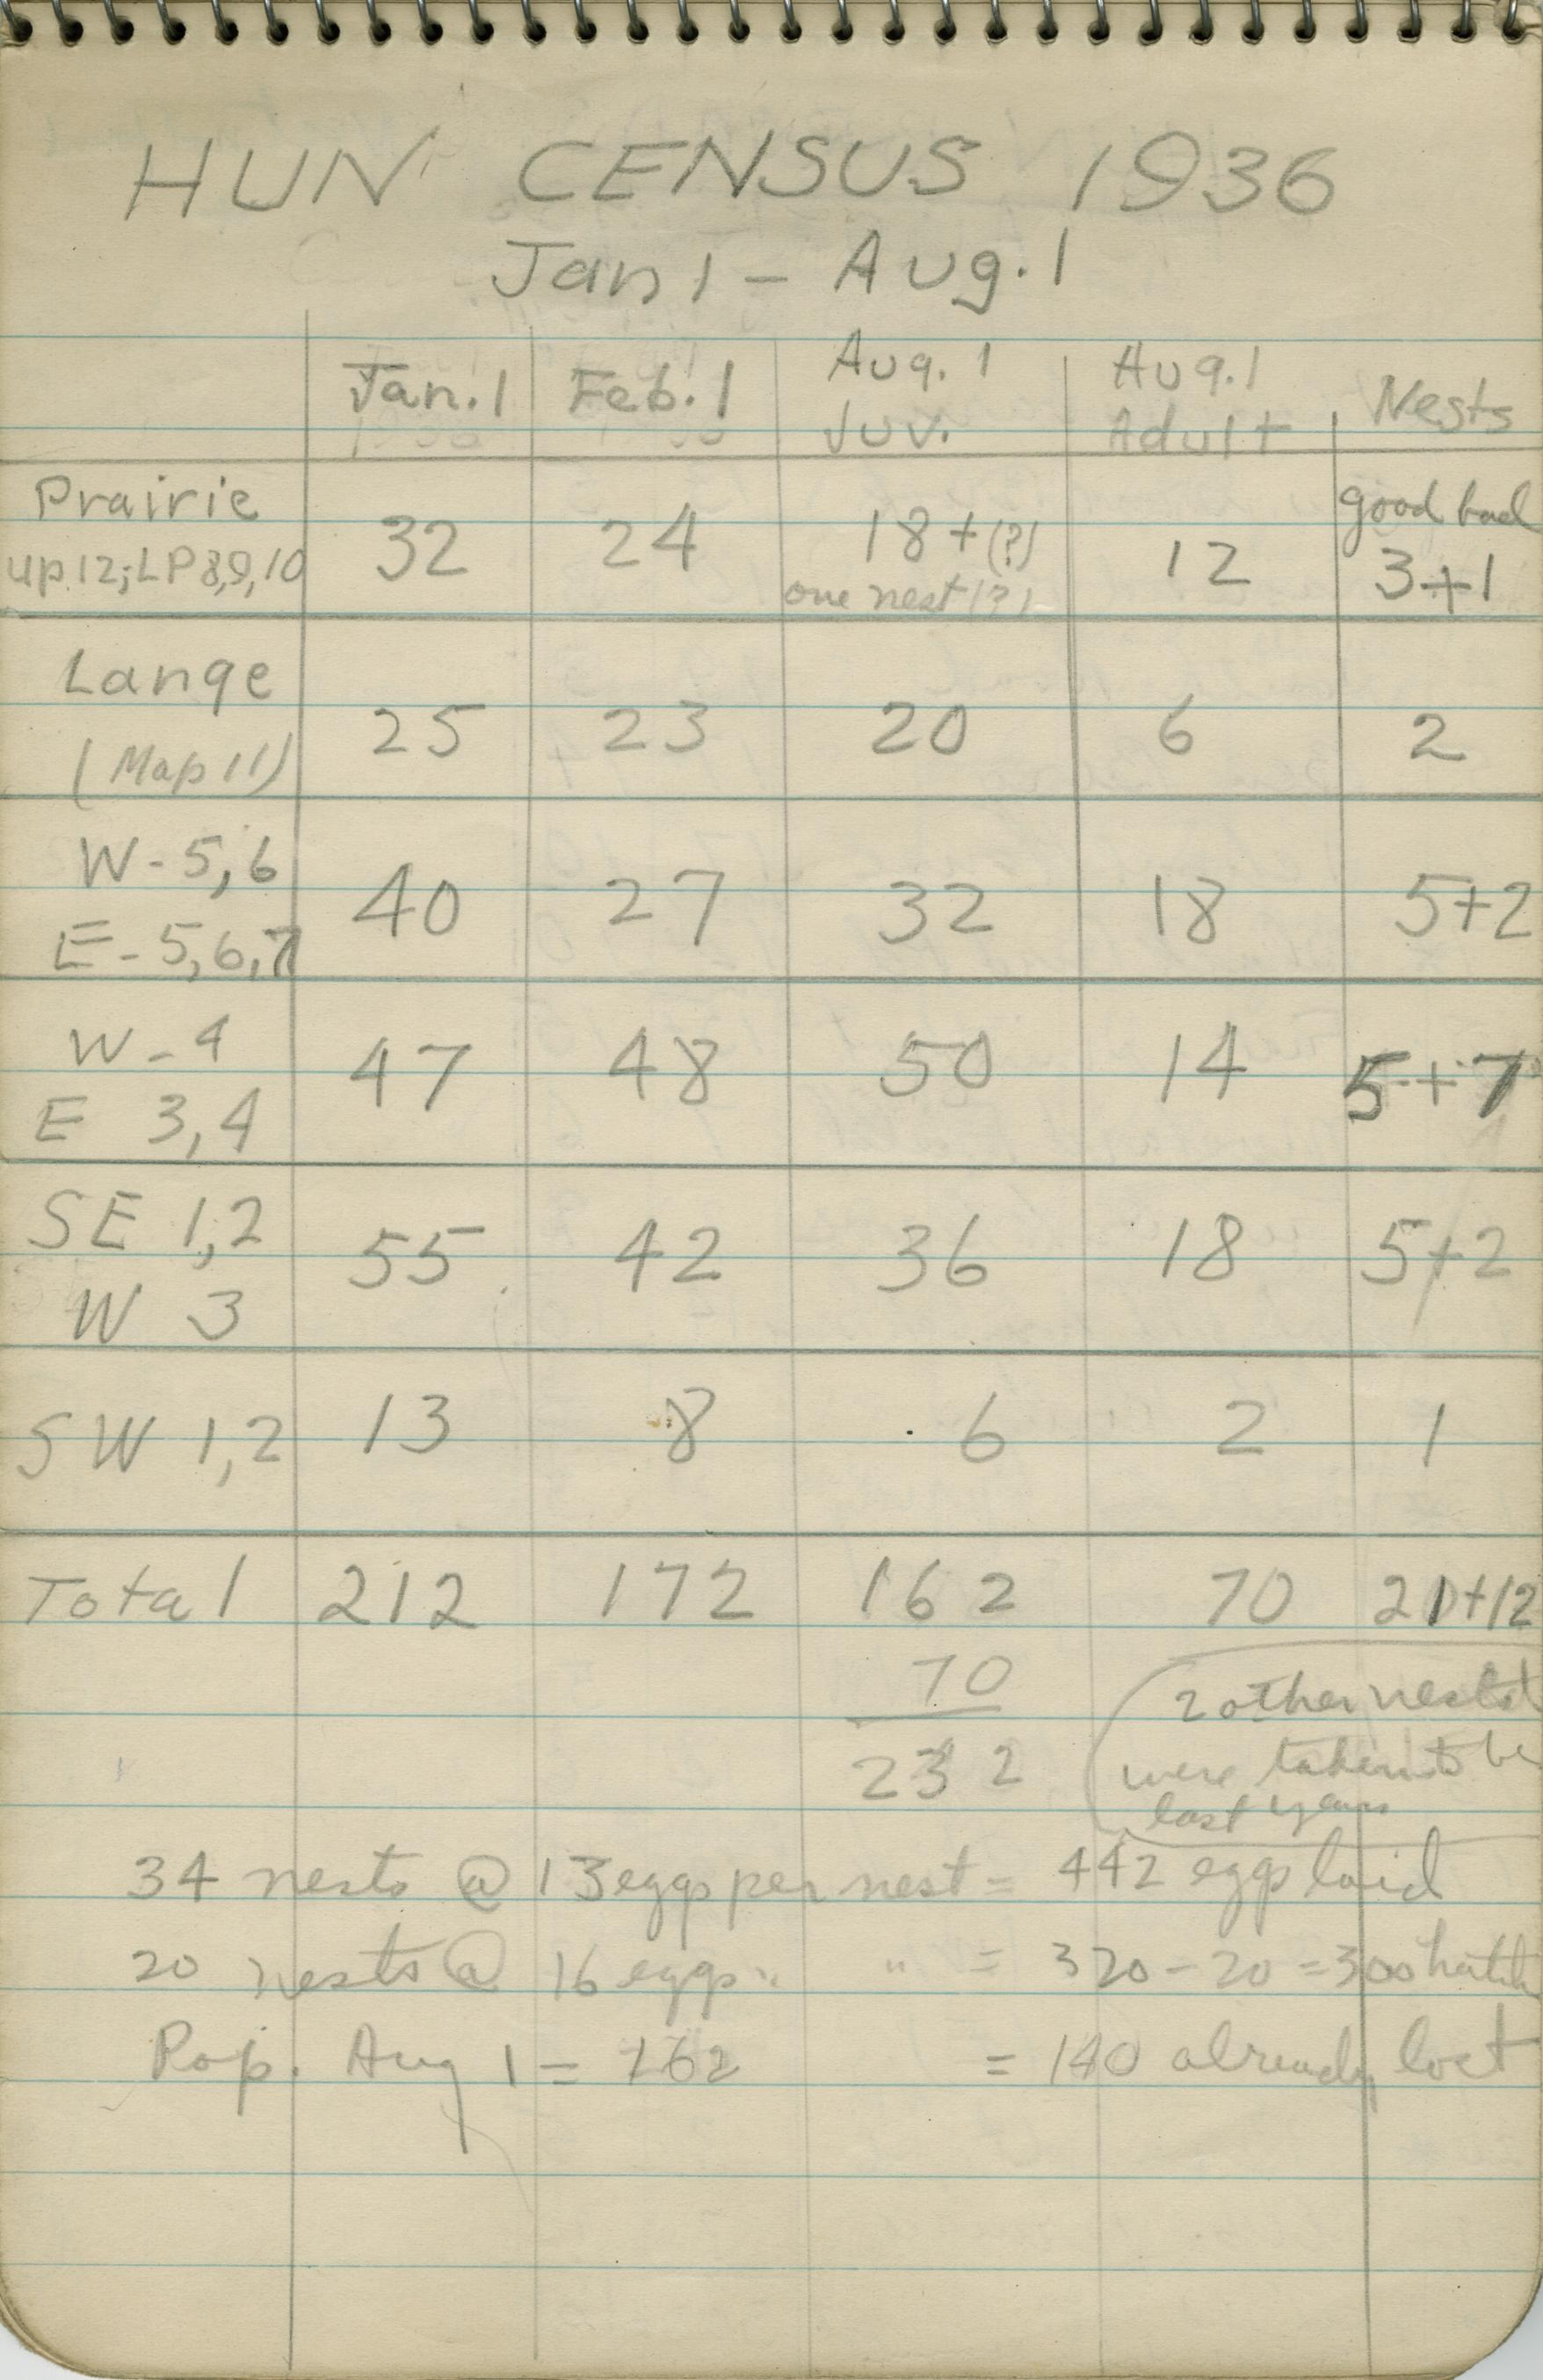 HUN CENSUS 1936
Jan 1 - Aug. 1
Jan. 1 Feb. 1 Aug. 1 Juv. Aug. 1 Adult Nests
Prairie good bad
up 12; LP 8,9,10 32 24 18 + (?) 12 3+1
one nest (?)
Lange
(Map 11) 25 23 20 6 2
W - 5, 6
E - 5, 6, 7 40 27 32 18 5+2
W - 4
E 3, 4 47 48 50 14 5+7
SE 1, 2
W 3 55 42 36 18 5+2
SW 1, 2 13 8 6 2 1
Total 212 172 162 70 21+12
70
232
2 other nests
were taken to be
last years
34 nests @ 13 eggs per nest = 442 eggs laid
20 nests @ 16 eggs " " = 320 - 20 = 300 hatch
Pop. Aug 1 = 162 = 140 already lost